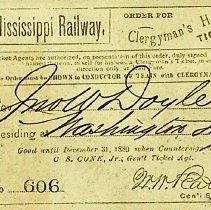 Mississippi Railway.
ORDER FOR
Clergyman's H
TIC
Ticket Agents are authorized, on presentation of this order, duly signed
to sell for his use a Clergyman's Ticket, in
direction only at
Order must be SHOWN to CONDUCTOR OF TRAIN with CLERGYM
Jno W Doyle
residing Washington
Good until December 31, 1880 when Countersign
C S. CONE, Jr., Gen'l Ticket Agt.
No 606.
Gen'l S